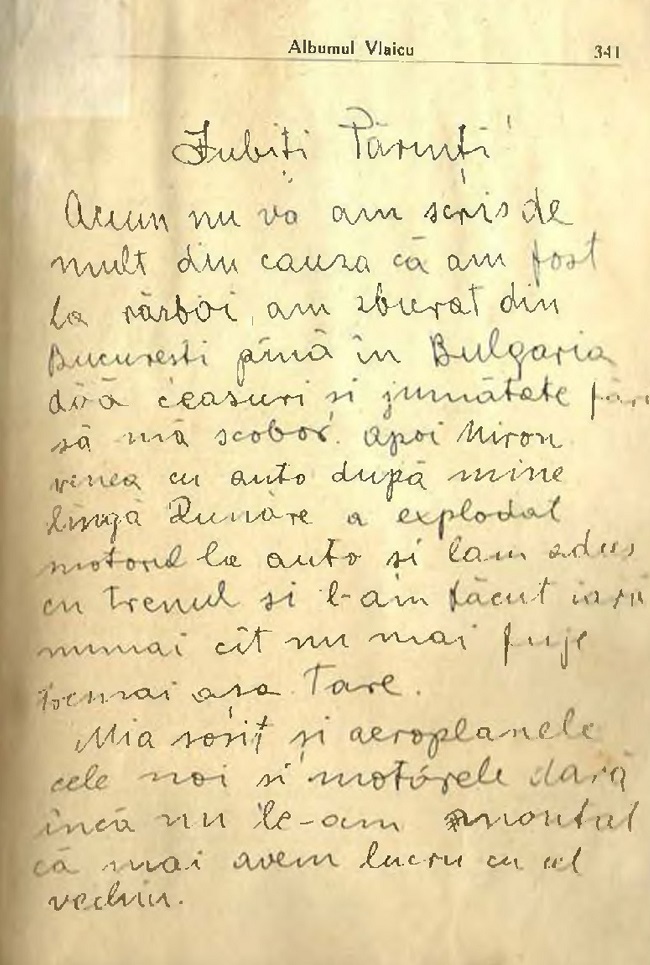 Albumul Vlaicu 341
Iubiți Părinți!
Acum nu vă am scris de
mult din cauza că am fost
la război, am zburat din
Bucuresti pînă in Bulgaria
dóă ceasuri si jumătate fără
să mă scobor. apoi Miron
venea cu auto după mine
lîngă Dunăre a explodat
motorul la auto si lam adus
cu trenul si l-am făcut iară
numai cît nu mai fuje
tocmai asa tare.
Mia sosit și aeroplanele
cele noi si motórele dară
incă nu le-am montat
că mai avem lucru cu al
vechiu.